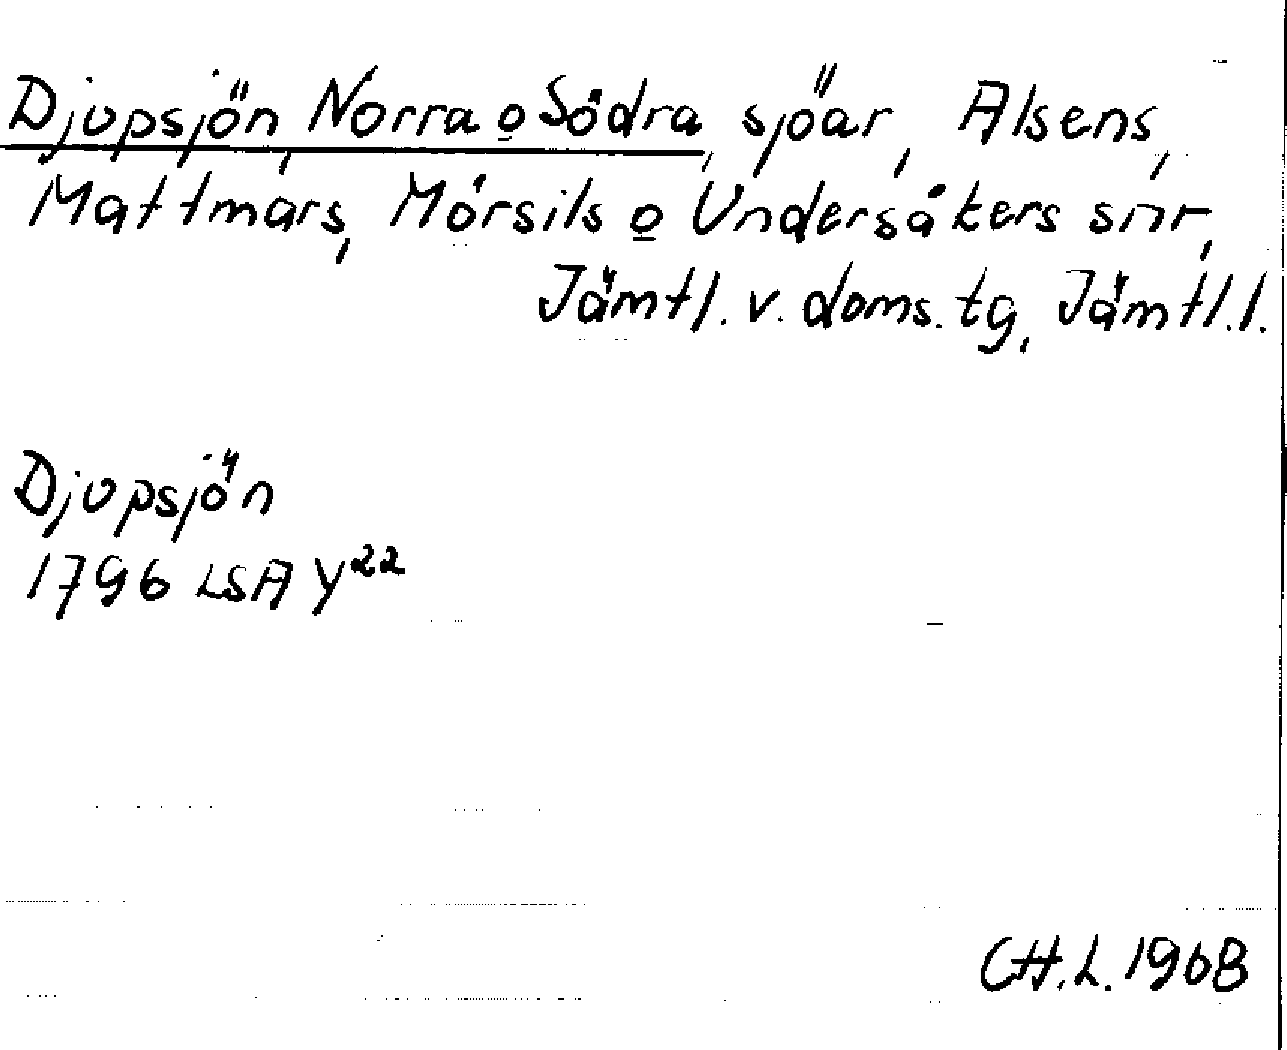 Djupsjön, Norra o Södra, sjöar, Alsens,
Mattmars, Mörsils o Undersåkers snr,
Jämtl. v. doms. tg, Jämtl. l.
Djupsjön
1796 LSA Y22
CH.L. 1968